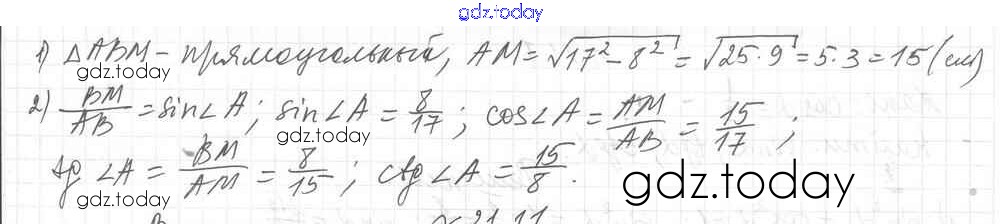 gdz.today
1) △ABM - прямоугольный, AM = √(17² - 8²) = √(25·9) = 5·3 = 15 (см)
gdz.today
2) BM/AB = sin∠A; sin∠A = 8/17; cos∠A = AM/AB = 15/17;
gdz.today
tg ∠A = BM/AM = 8/15; ctg ∠A = 15/8.
gdz.today